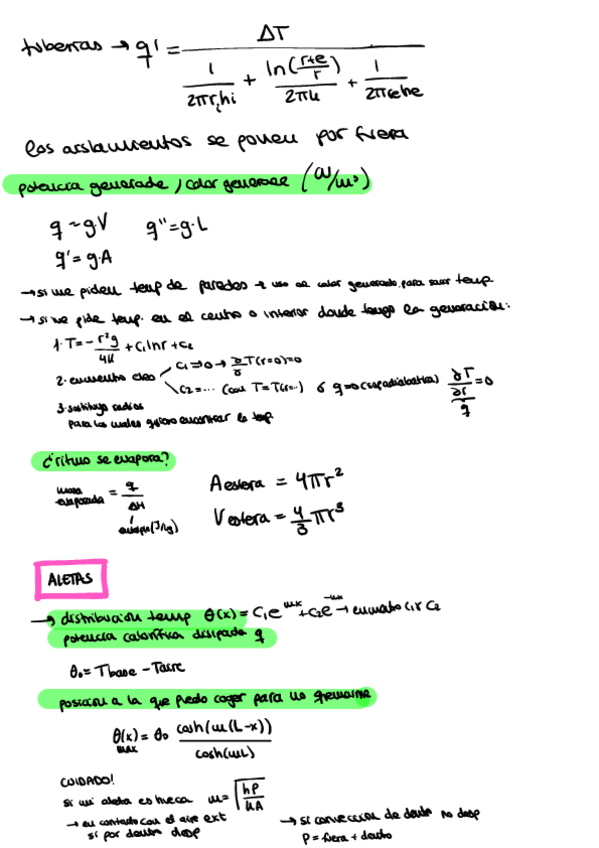 tuberías → q' = ΔT / (1/(2πr_i h_i) + ln((r+e)/r)/(2πk) + 1/(2πr_e h_e))
los aislamientos se ponen por fuera
potencia generada, calor generase (W/m³)
q = g·V    q'' = g·L
q' = g·A
→ si me piden temp de paredes → uso el calor generado para sacar temp
→ si me pide temp. en el centro o interior donde tengo la generación:
1. T = - r²g/4k + C₁ ln r + C₂
2. encuentro ctes
C₁ => 0 → ∂/∂ T(r=0)=0
C₂ = ... (con T = T(r=..) ó q=0 (sup adiabática) ∂T/∂r = 0
q
3. sustituyo radios
para los cuales quiero encontrar la temp
¿ritmo se evapora?
masa evaporada = q/ΔH
entalpía (J/kg)
A esfera = 4πr²
V esfera = 4/3 πr³
ALETAS
→ distribución temp θ(x) = C₁e^mx + C₂e^-mx → encuentro C₁ y C₂
potencia calorífica disipada q
θ₀ = Tbase - Taire
posición a la que puedo coger para no quemarme
θ(x) = θ₀ cosh(m(L-x)) / cosh(mL)
max
CUIDADO!
si mi aleta es hueca m = √(hP/kA)
→ en contacto con el aire ext
si por dentro desp
→ si convección de dentro no desp
P = fuera + dentro